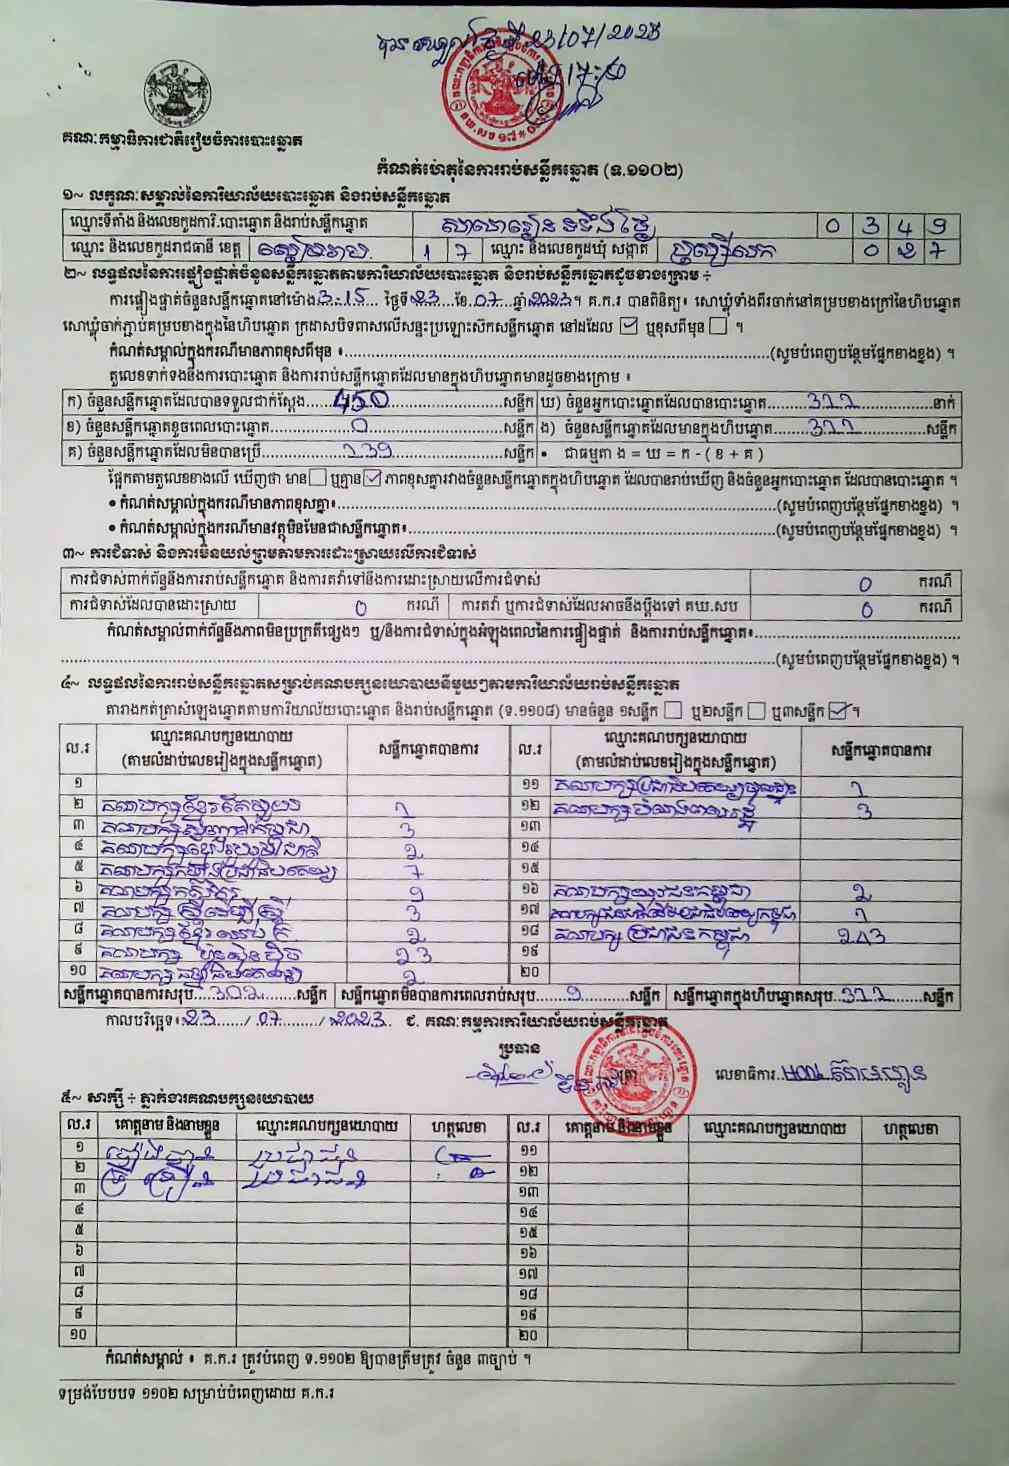 23/07/2023
គណៈកម្មាធិការជាតិរៀបចំការបោះឆ្នោត
កំណត់ហេតុនៃការរាប់សន្លឹកឆ្នោត (ទ.១១០២)
១~ លក្ខណៈសម្គាល់នៃការិយាល័យបោះឆ្នោត និងរាប់សន្លឹកឆ្នោត
ឈ្មោះទីតាំង និងលេខកូដការិ.បោះឆ្នោត និងរាប់សន្លឹកឆ្នោត 0 3 4 9
ឈ្មោះ និងលេខកូដរាជធានី ខេត្ត សៀមរាប 1 7 ឈ្មោះ និងលេខកូដឃុំ សង្កាត់ 0 2 7
២~ លទ្ធផលនៃការផ្ទៀងផ្ទាត់ចំនួនសន្លឹកឆ្នោតតាមការិយាល័យបោះឆ្នោត និងរាប់សន្លឹកឆ្នោតដូចខាងក្រោម ÷
ការផ្ទៀងផ្ទាត់ចំនួនសន្លឹកឆ្នោតនៅម៉ោង 3:15 ថ្ងៃទី 23 ខែ 07 ឆ្នាំ 2023 ។ គ.ក.រ បានពិនិត្យ៖ សោឃ្លុំទាំងពីរចាក់នៅគម្របខាងក្រៅនៃហិបឆ្នោត
សោឃ្លុំចាក់ភ្ជាប់គម្របខាងក្នុងនៃហិបឆ្នោត ក្រដាសបិទពាសលើសន្ទះប្រឡោះស៊កសន្លឹកឆ្នោត នៅដដែល ☑ ឬខុសពីមុន ☐ ។
កំណត់សម្គាល់ក្នុងករណីមានភាពខុសពីមុន ៖ (សូមបំពេញបន្ថែមផ្នែកខាងខ្នង) ។
តួលេខទាក់ទងនឹងការបោះឆ្នោត និងការរាប់សន្លឹកឆ្នោតដែលមានក្នុងហិបឆ្នោតមានដូចខាងក្រោម ៖
ក) ចំនួនសន្លឹកឆ្នោតដែលបានទទួលជាក់ស្តែង 450 សន្លឹក ឃ) ចំនួនអ្នកបោះឆ្នោតដែលបានបោះឆ្នោត 311 នាក់
ខ) ចំនួនសន្លឹកឆ្នោតខូចពេលបោះឆ្នោត 0 សន្លឹក ង) ចំនួនសន្លឹកឆ្នោតដែលមានក្នុងហិបឆ្នោត 311 សន្លឹក
គ) ចំនួនសន្លឹកឆ្នោតដែលមិនបានប្រើ 139 សន្លឹក • ជាធម្មតា ង = ឃ = ក - ( ខ + គ )
ផ្អែកតាមតួលេខខាងលើ ឃើញថា មាន ☐ ឬគ្មាន ☑ ភាពខុសគ្នារវាងចំនួនសន្លឹកឆ្នោតក្នុងហិបឆ្នោត ដែលបានរាប់ឃើញ និងចំនួនអ្នកបោះឆ្នោត ដែលបានបោះឆ្នោត ។
• កំណត់សម្គាល់ក្នុងករណីមានភាពខុសគ្នា៖ (សូមបំពេញបន្ថែមផ្នែកខាងខ្នង) ។
• កំណត់សម្គាល់ក្នុងករណីមានវត្ថុមិនមែនជាសន្លឹកឆ្នោត៖ (សូមបំពេញបន្ថែមផ្នែកខាងខ្នង) ។
៣~ ការជំទាស់ និងការមិនយល់ព្រមតាមការដោះស្រាយលើការជំទាស់
ការជំទាស់ពាក់ព័ន្ធនឹងការរាប់សន្លឹកឆ្នោត និងការតវ៉ាទៅនឹងការដោះស្រាយលើការជំទាស់ 0 ករណី
ការជំទាស់ដែលបានដោះស្រាយ 0 ករណី ការតវ៉ា ឬការជំទាស់ដែលអាចនឹងប្តឹងទៅ គឃ.សប 0 ករណី
កំណត់សម្គាល់ពាក់ព័ន្ធនឹងភាពមិនប្រក្រតីផ្សេងៗ ឬ/និងការជំទាស់ក្នុងអំឡុងពេលនៃការផ្ទៀងផ្ទាត់ និងការរាប់សន្លឹកឆ្នោត៖
(សូមបំពេញបន្ថែមផ្នែកខាងខ្នង) ។
៤~ លទ្ធផលនៃការរាប់សន្លឹកឆ្នោតសម្រាប់គណបក្សនយោបាយនីមួយៗតាមការិយាល័យរាប់សន្លឹកឆ្នោត
តារាងកត់ត្រាសំឡេងឆ្នោតតាមការិយាល័យបោះឆ្នោត និងរាប់សន្លឹកឆ្នោត (ទ.១១០៨) មានចំនួន ១សន្លឹក ☐ ឬ២សន្លឹក ☐ ឬ៣សន្លឹក ☑ ។
ល.រ ឈ្មោះគណបក្សនយោបាយ (តាមលំដាប់លេខរៀងក្នុងសន្លឹកឆ្នោត) សន្លឹកឆ្នោតបានការ ល.រ ឈ្មោះគណបក្សនយោបាយ (តាមលំដាប់លេខរៀងក្នុងសន្លឹកឆ្នោត) សន្លឹកឆ្នោតបានការ
១ ១១ 1
២ គណបក្សខ្មែរតែមួយ 1 ១២ 3
៣ 3 ១៣
៤ គណបក្សខ្មែររួបរួមជាតិ 2 ១៤
៥ គណបក្សកម្លាំងប្រជាធិបតេយ្យ 7 ១៥
៦ គណបក្សកសិករ 9 ១៦ គណបក្សយុវជនកម្ពុជា 2
៧ គណបក្សស្ត្រីដើម្បីស្ត្រី 3 ១៧ 1
៨ 2 ១៨ គណបក្សប្រជាជនកម្ពុជា 243
៩ គណបក្សហ៊្វុនស៊ិនប៉ិច 23 ១៩
១០ គណបក្សធម្មាធិបតេយ្យ 2 ២០
សន្លឹកឆ្នោតបានការសរុប 302 សន្លឹក សន្លឹកឆ្នោតមិនបានការពេលរាប់សរុប 9 សន្លឹក សន្លឹកឆ្នោតក្នុងហិបឆ្នោតសរុប 311 សន្លឹក
កាលបរិច្ឆេទ៖ 23 / 07 / 2023 ជ. គណៈកម្មការការិយាល័យរាប់សន្លឹកឆ្នោត
ប្រធាន
លេខាធិការ
៥~ សាក្សី ÷ ភ្នាក់ងារគណបក្សនយោបាយ
ល.រ គោត្តនាម និងនាមខ្លួន ឈ្មោះគណបក្សនយោបាយ ហត្ថលេខា ល.រ គោត្តនាម និងនាមខ្លួន ឈ្មោះគណបក្សនយោបាយ ហត្ថលេខា
១ ១១
២ ១២
៣ ១៣
៤ ១៤
៥ ១៥
៦ ១៦
៧ ១៧
៨ ១៨
៩ ១៩
១០ ២០
កំណត់សម្គាល់ ៖ គ.ក.រ ត្រូវបំពេញ ទ.១១០២ ឱ្យបានត្រឹមត្រូវ ចំនួន ៣ច្បាប់ ។
ទម្រង់បែបបទ ១១០២ សម្រាប់បំពេញដោយ គ.ក.រ